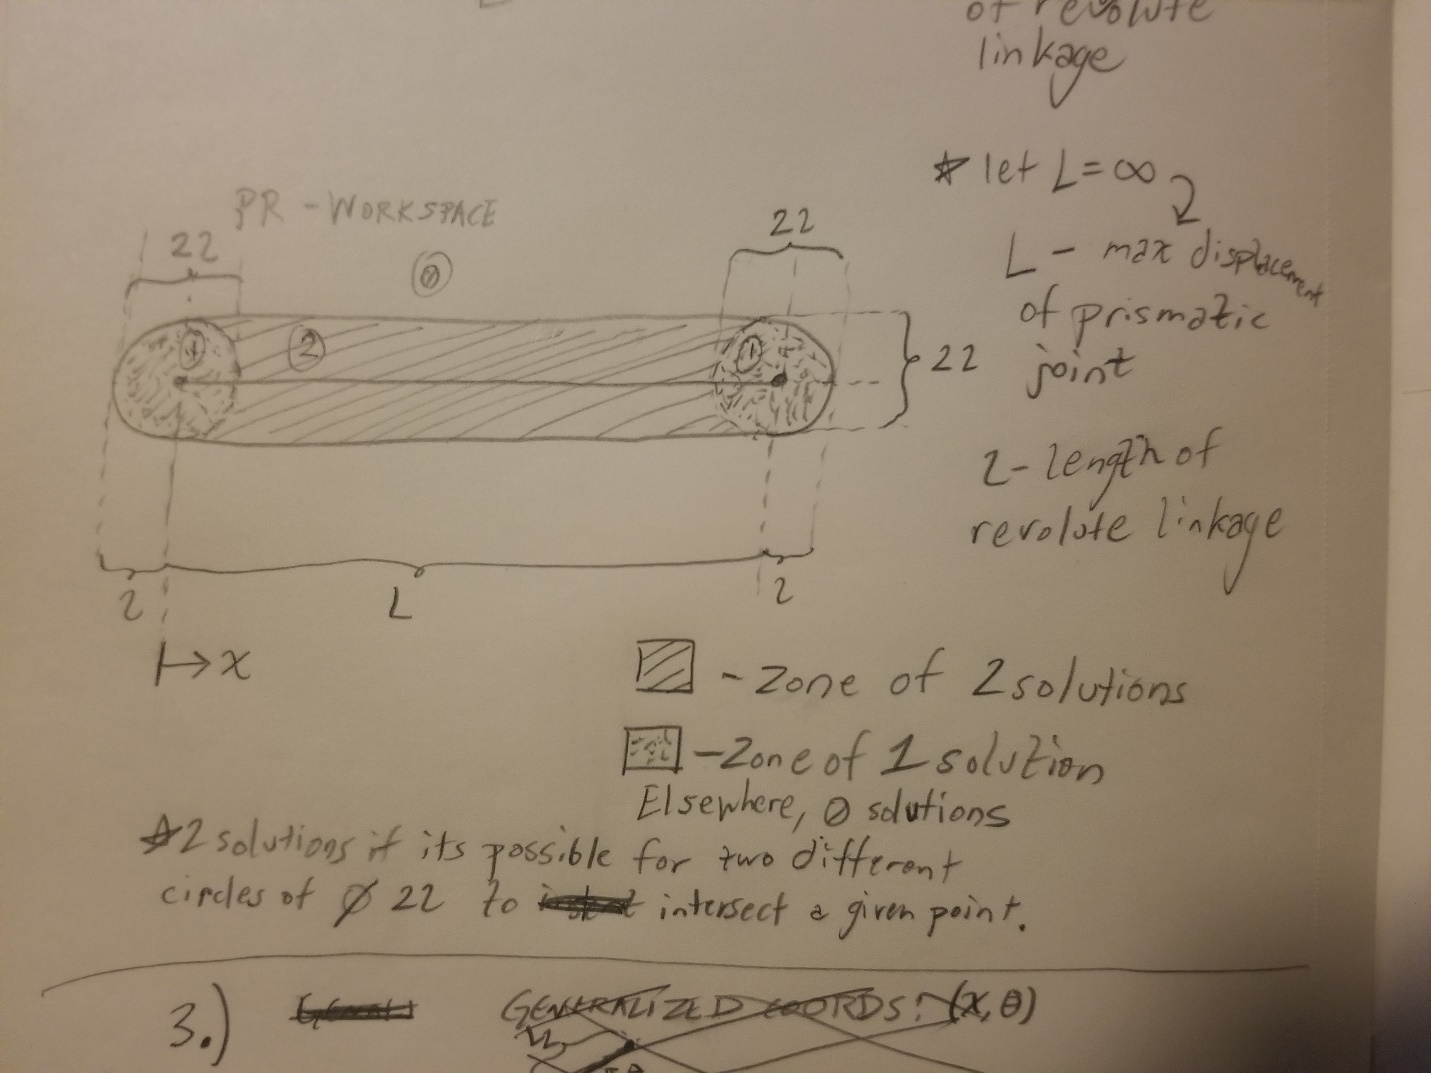 of revolute
linkage
* let L = ∞
PR - WORKSPACE
22
22
0
L - max displacement
of prismatic
joint
1
2
1
22
2 - length of
revolute linkage
2
L
2
x
- zone of 2 solutions
- Zone of 1 solution
Elsewhere, 0 solutions
*2 solutions if its possible for two different
circles of Ø 22 to intersect a given point.
3.) GENERALIZED COORDS: (x, θ)